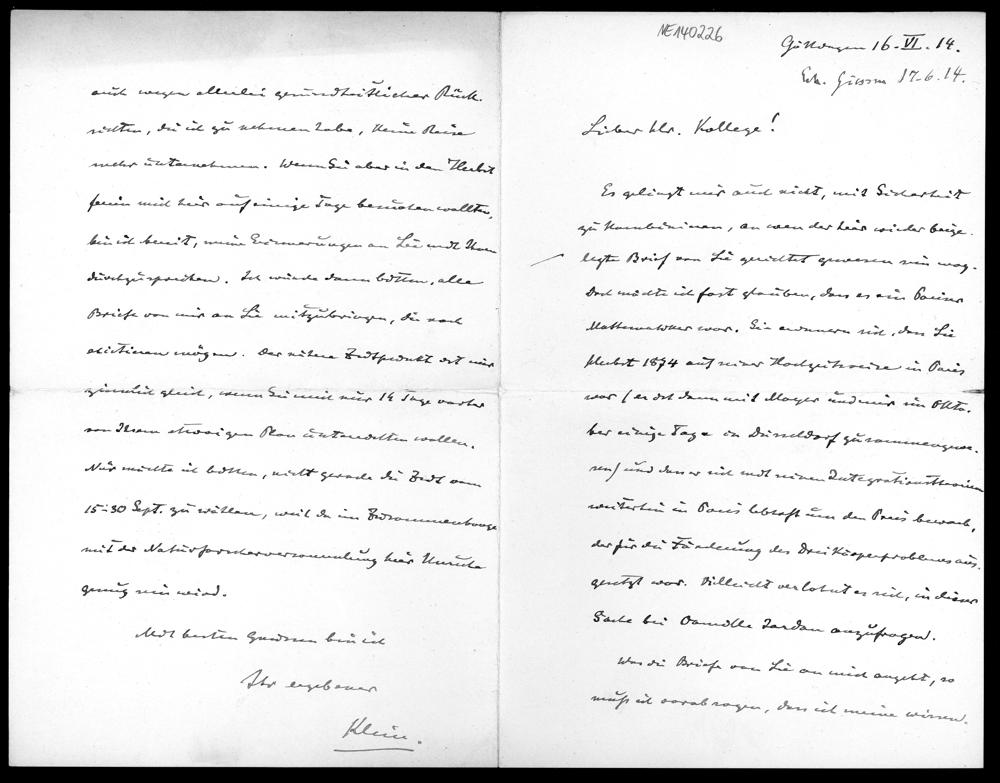 NE140226
Göttingen 16. VI. 14.
Giessen 17.6.14.
Lieber Hr. Kollege!
Es gelingt mir auch nicht, mit Sicherheit
zu kombinieren, an wen der hier wieder beige-
legte Brief von Lie gerichtet gewesen sein mag.
Doch möchte ich fast glauben, dass es ein Pariser
Mathematiker war. Sie erinnern sich, dass Lie
Herbst 1874 auf seiner Hochzeitsreise in Paris
war (er ist dann mit Mayer und mir im Okto-
ber einige Tage in Düsseldorf zusammengewe-
sen) und dass er sich mit seinen Integrationstheorien
weiterhin in Paris lebhaft um den Preis bewarb,
der für die Förderung des Dreikörperproblems aus-
gesetzt war. Vielleicht verlohnt es sich, in dieser
Sache bei Camille Jordan anzufragen.
Was die Briefe von Lie an mich angeht, so
muss ich vorab sagen, dass ich meine
auch wegen allerlei gesundheitlicher Rück-
sichten, die ich zu nehmen habe, keine Reise
mehr unternehmen. Wenn Sie aber in den Herbst
ferien mich hier auf einige Tage besuchen wollten,
bin ich bereit, meine Erinnerungen an Lie mit Ihnen
durchzusprechen. Ich würde dann bitten, alle
Briefe von mir an Lie mitzubringen, die noch
existieren mögen. Der nähere Zeitpunkt ist mir
ziemlich gleich, wenn Sie mich nur 14 Tage vorher
von Ihrem etwaigen Plan unterrichten wollen.
Nur möchte ich bitten, nicht gerade die Zeit vom
15-30 Sept. zu wählen, weil da im Zusammenhange
mit der Naturforscherversammlung hier Unruhe
genug sein wird.
Mit besten Grüssen bin ich
Ihr ergebener
Klein.